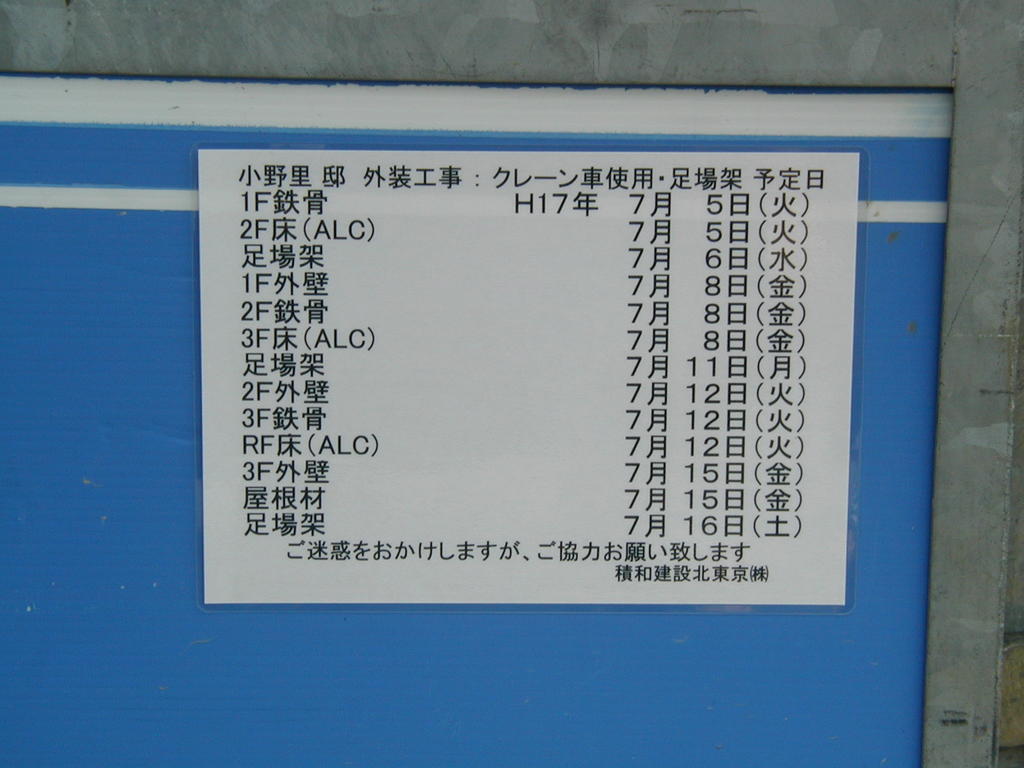 小野里 邸 外装工事：クレーン車使用・足場架 予定日
1F鉄骨 H17年 7月 5日(火)
2F床(ALC) 7月 5日(火)
足場架 7月 6日(水)
1F外壁 7月 8日(金)
2F鉄骨 7月 8日(金)
3F床(ALC) 7月 8日(金)
足場架 7月 11日(月)
2F外壁 7月 12日(火)
3F鉄骨 7月 12日(火)
RF床(ALC) 7月 12日(火)
3F外壁 7月 15日(金)
屋根材 7月 15日(金)
足場架 7月 16日(土)
ご迷惑をおかけしますが、ご協力お願い致します
積和建設北東京㈱